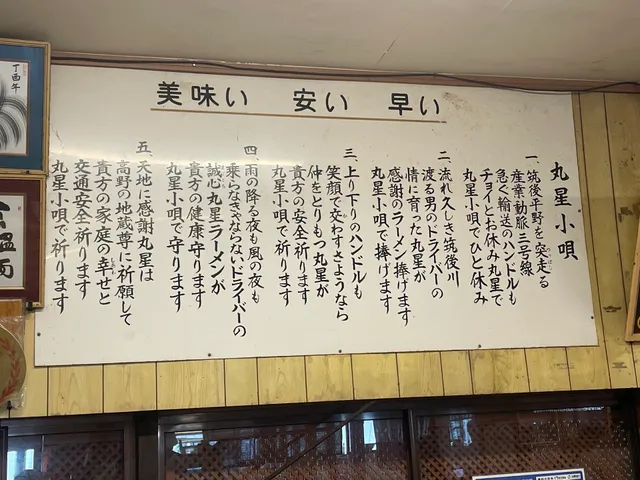 美味い 安い 早い
丸星小唄
一、筑後平野を突走る
産業動脈三号線
急ぐ輸送のハンドルも
チョイとお休み丸星で
丸星小唄でひと休み
二、流れ久しき筑後川
渡る男のドライバーの
情に育った丸星が
感謝のラーメン捧げます
丸星小唄で捧げます
三、上り下りのハンドルも
笑顔で交わすさようなら
仲をとりもつ丸星が
貴方の安全祈ります
丸星小唄で祈ります
四、雨の降る夜も風の夜も
乗らなきゃならないドライバーの
誠心丸星ラーメンが
貴方の健康守ります
丸星小唄で守ります
五、天地に感謝丸星は
高野の地蔵尊に祈願して
貴方の家庭の幸せと
交通安全祈ります
丸星小唄で祈ります
丁酉年